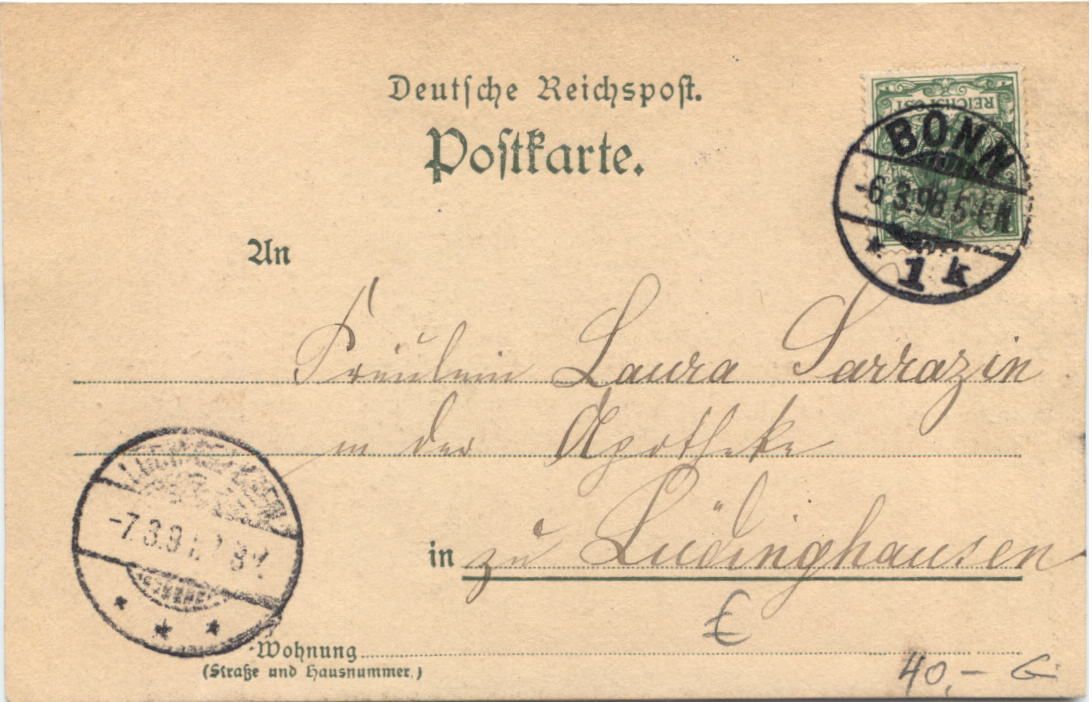 Deutsche Reichspost.
Postkarte.
REICHSPOST
BONN
-6.3.98.5-6N
* 1 k
An
Fräulein Laura Sarrazin
in der Apotheke
in zu Lüdinghausen
-7.3.9
* * *
€
Wohnung
(Straße und Hausnummer.)
40,- G